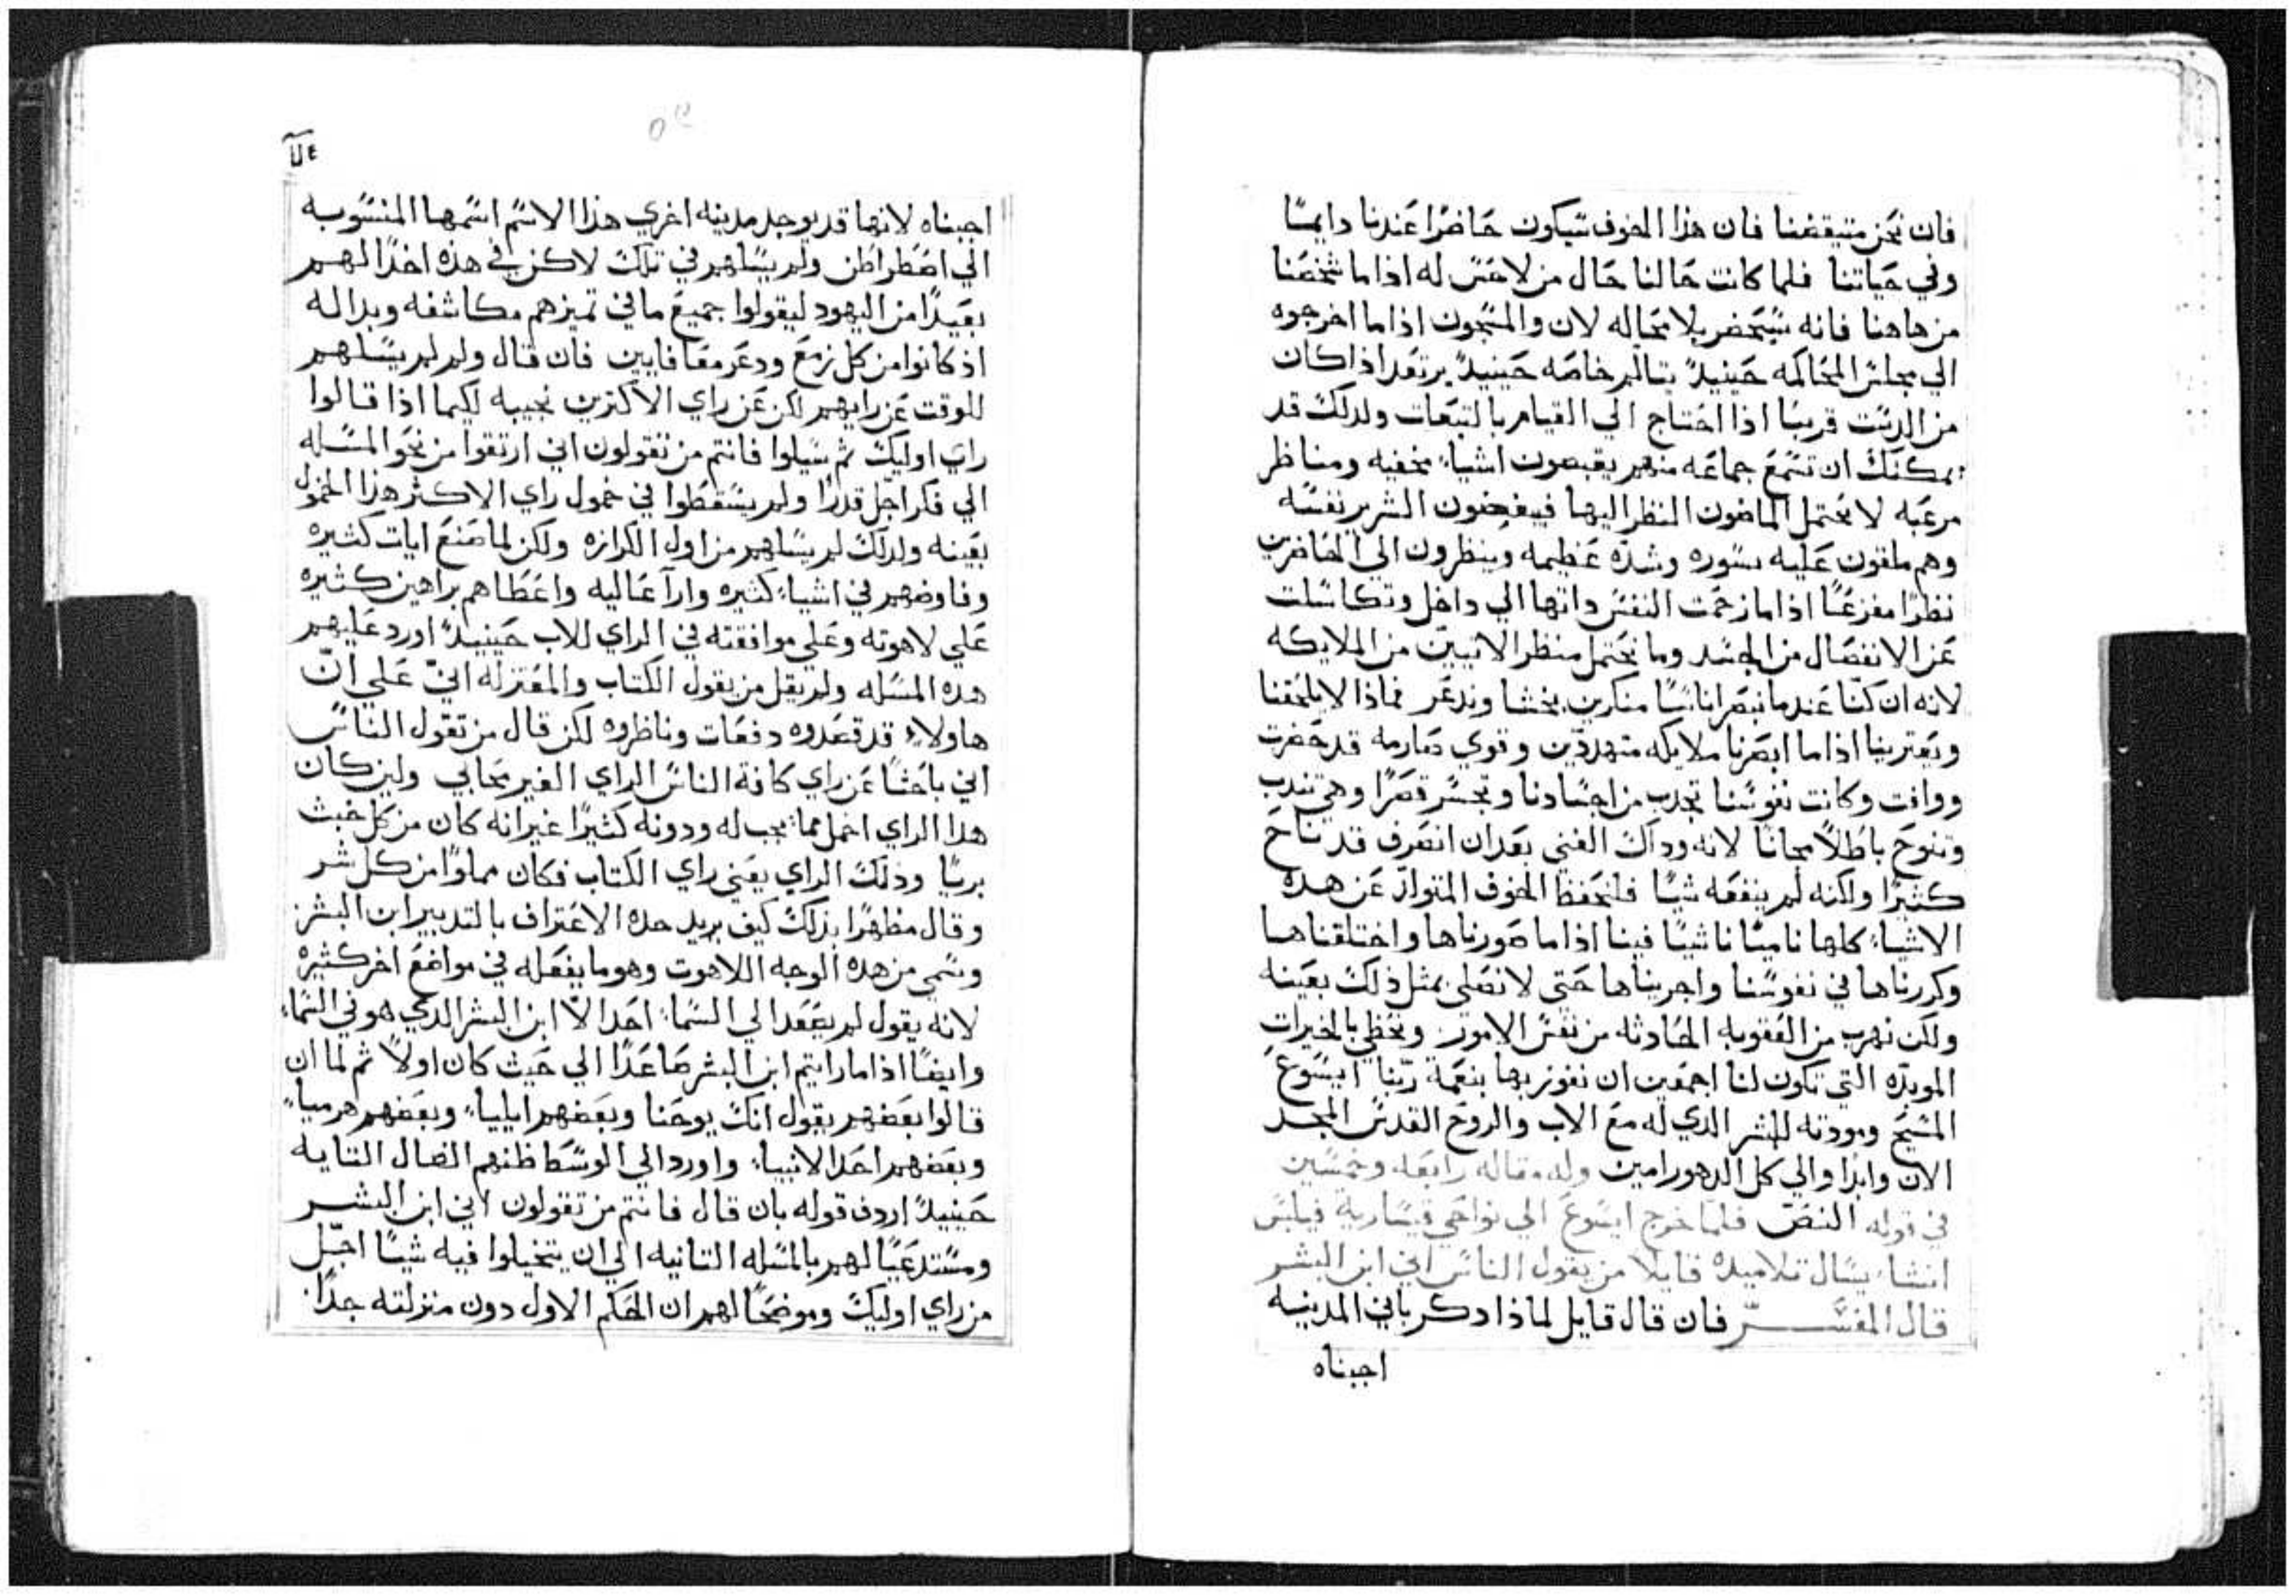 فان نحن متيقضنا فان هذا الخوف سيكون حاضرًا عندنا دايمًا
وفي حياتنا فلما كانت حالنا حال من لا حس له اذا ما شخصنا
من هاهنا فانه سيحضر بلا محاله لان والمسجون اذا ما اخرجوه
الي مجلس المحاكمه حينيدً يتالم خاصه حينيدً يرتعد اذا كان
من الدست قريبًا اذا احتاج الي القيام بالتبعات ولدلك قد
يمكنك ان تسمع جماعه منهم يقصون اشياء مخفيه ومناظر
مرعبه لا يحتمل الماضون النظر اليها فيفحصون الشرير نفسه
وهم ملقون عليه بسوره وشده عظيمه وينظرون الي الحاضرين
نظرًا مفزعًا اذا ما زحمت النفس داتها الي داخل وتكاسلت
عن الانفصال من الجسد وما تحتمل منظر الاتيين من الملايكه
لانه ان كنا عندما نبصر اناسًا منكرين نخشا وندعر فماذا لا يلحقنا
ويعترينا اذا ما ابصرنا ملايكه متهددين وقوي صارمه قد حضرت
ووافت وكانت نفوسنا تجدب من اجسادنا وتجسر قصرًا وهي تندب
وتنوح باطلاً مجانًا لانه وداك الغني بعد ان انصرف قد ناح
كثيرًا ولكنه لم ينفعه شيًا فلنحفظ الخوف المتولد عن هده
الاشياء كلها ناميًا ناشيًا فينا اذا ما صورناها واختلقناها
وكررناها في نفوسنا واجريناها حتي لا نصلي بمثل ذلك بعينه
ولكن نهرب من العقوبه الحادثه من نفس الامور ونحظي بالخيرات
الموبده التي تكون لنا اجمعين ان نفوز بها بنعمة ربنا ايسوع
المسيح ومودته للبشر الدي له مع الاب والروح القدس المجد
الان وابدًا والي كل الدهور امين وله مقاله رابعه وخمسين
في قوله النص فلما خرج ايسوع الي نواحي قيساريه فيلبس
انشاء يسال تلاميده قايلا من يقول الناس اني ابن البشر
قال المفسر فان قال قايل لماذا دكر باني المدينه
اجبناه
اجبناه لانها قد يوجد مدينه اخري هذا الاسم اسمها المنسوبه
الي اضطراطن ولم يسالهم في تلك لاكن في هذه اخدًا لهم
بعيدًا من اليهود ليقولوا جميع ما في تميزهم مكاشفه وبداله
اذ كانوا من كل زمع ودعر معافايين فان قال ولم لم يسالهم
للوقت عن رايهم لكن عن راي الاكثرين نجيبه لكيما اذا قالوا
راي اوليك ثم سيلوا فانتم من تقولون اني ارتقوا من نحو المساله
الي فكر اجل قدرًا ولم يسقطوا في خمول راي الاكثر هذا الخمول
بعينه ولدلك لم يسالهم من اول الكرازه ولكن لما صنع ايات كثيره
وفاوضهم في اشياء كثيره وارآ عاليه واعطاهم براهين كثيره
علي لاهوته وعلي موافقته في الراي للاب حينيدً اورد عليهم
هده المسله ولم يقل من يقول الكتاب والمعتزله اني علي ان
هاولاء قد قصدوه دفعات وناظروه لكن قال من تقول الناس
اني باحثًا عن راي كافة الناس الراي الغير محابي ولين كان
هدا الراي اخمل مما يجب له ودونه كثيرًا غير انه كان من كل خبث
بريًا وذلك الراي يعني راي الكتاب فكان مملوًا من كل شر
وقال مظهرًا بدلك كيف يريد حده الاعتراف بالتدبير ابن البشر
وسمي من هده الوجه اللاهوت وهو ما يفعله في مواضع اخر كثيره
لانه يقول لم يصعد الي السماء احدًا الا ابن البشر الدي هو في السماء
وايضًا اذا ما رايتم ابن البشر صاعدًا الي حيث كان اولاً ثم لما ان
قالوا بعضهم يقول انك يوحنا وبعضهم ايلياء وبعضهم هرمياء
وبعضهم احد الانبياء واورد الي الوسط ظنهم الضال التايه
حينيدً اردف قوله بان قال فانتم من تقولون اني ابن البشر
ومستدعيًا لهم بالمسله التانيه الي ان يتخيلوا فيه شيًا اجل
من راي اوليك وموضحًا لهم ان الحكم الاول دون منزلته جدًا